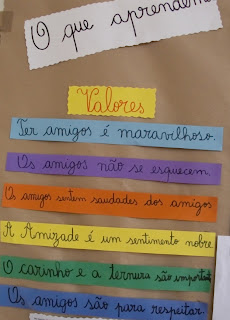 O que aprendem
Valores
Ter amigos é maravilhoso.
Os amigos não se esquecem.
Os amigos sentem saudades dos amigos
A Amizade é um sentimento nobre
O carinho e a ternura são important
Os amigos são para respeitar.